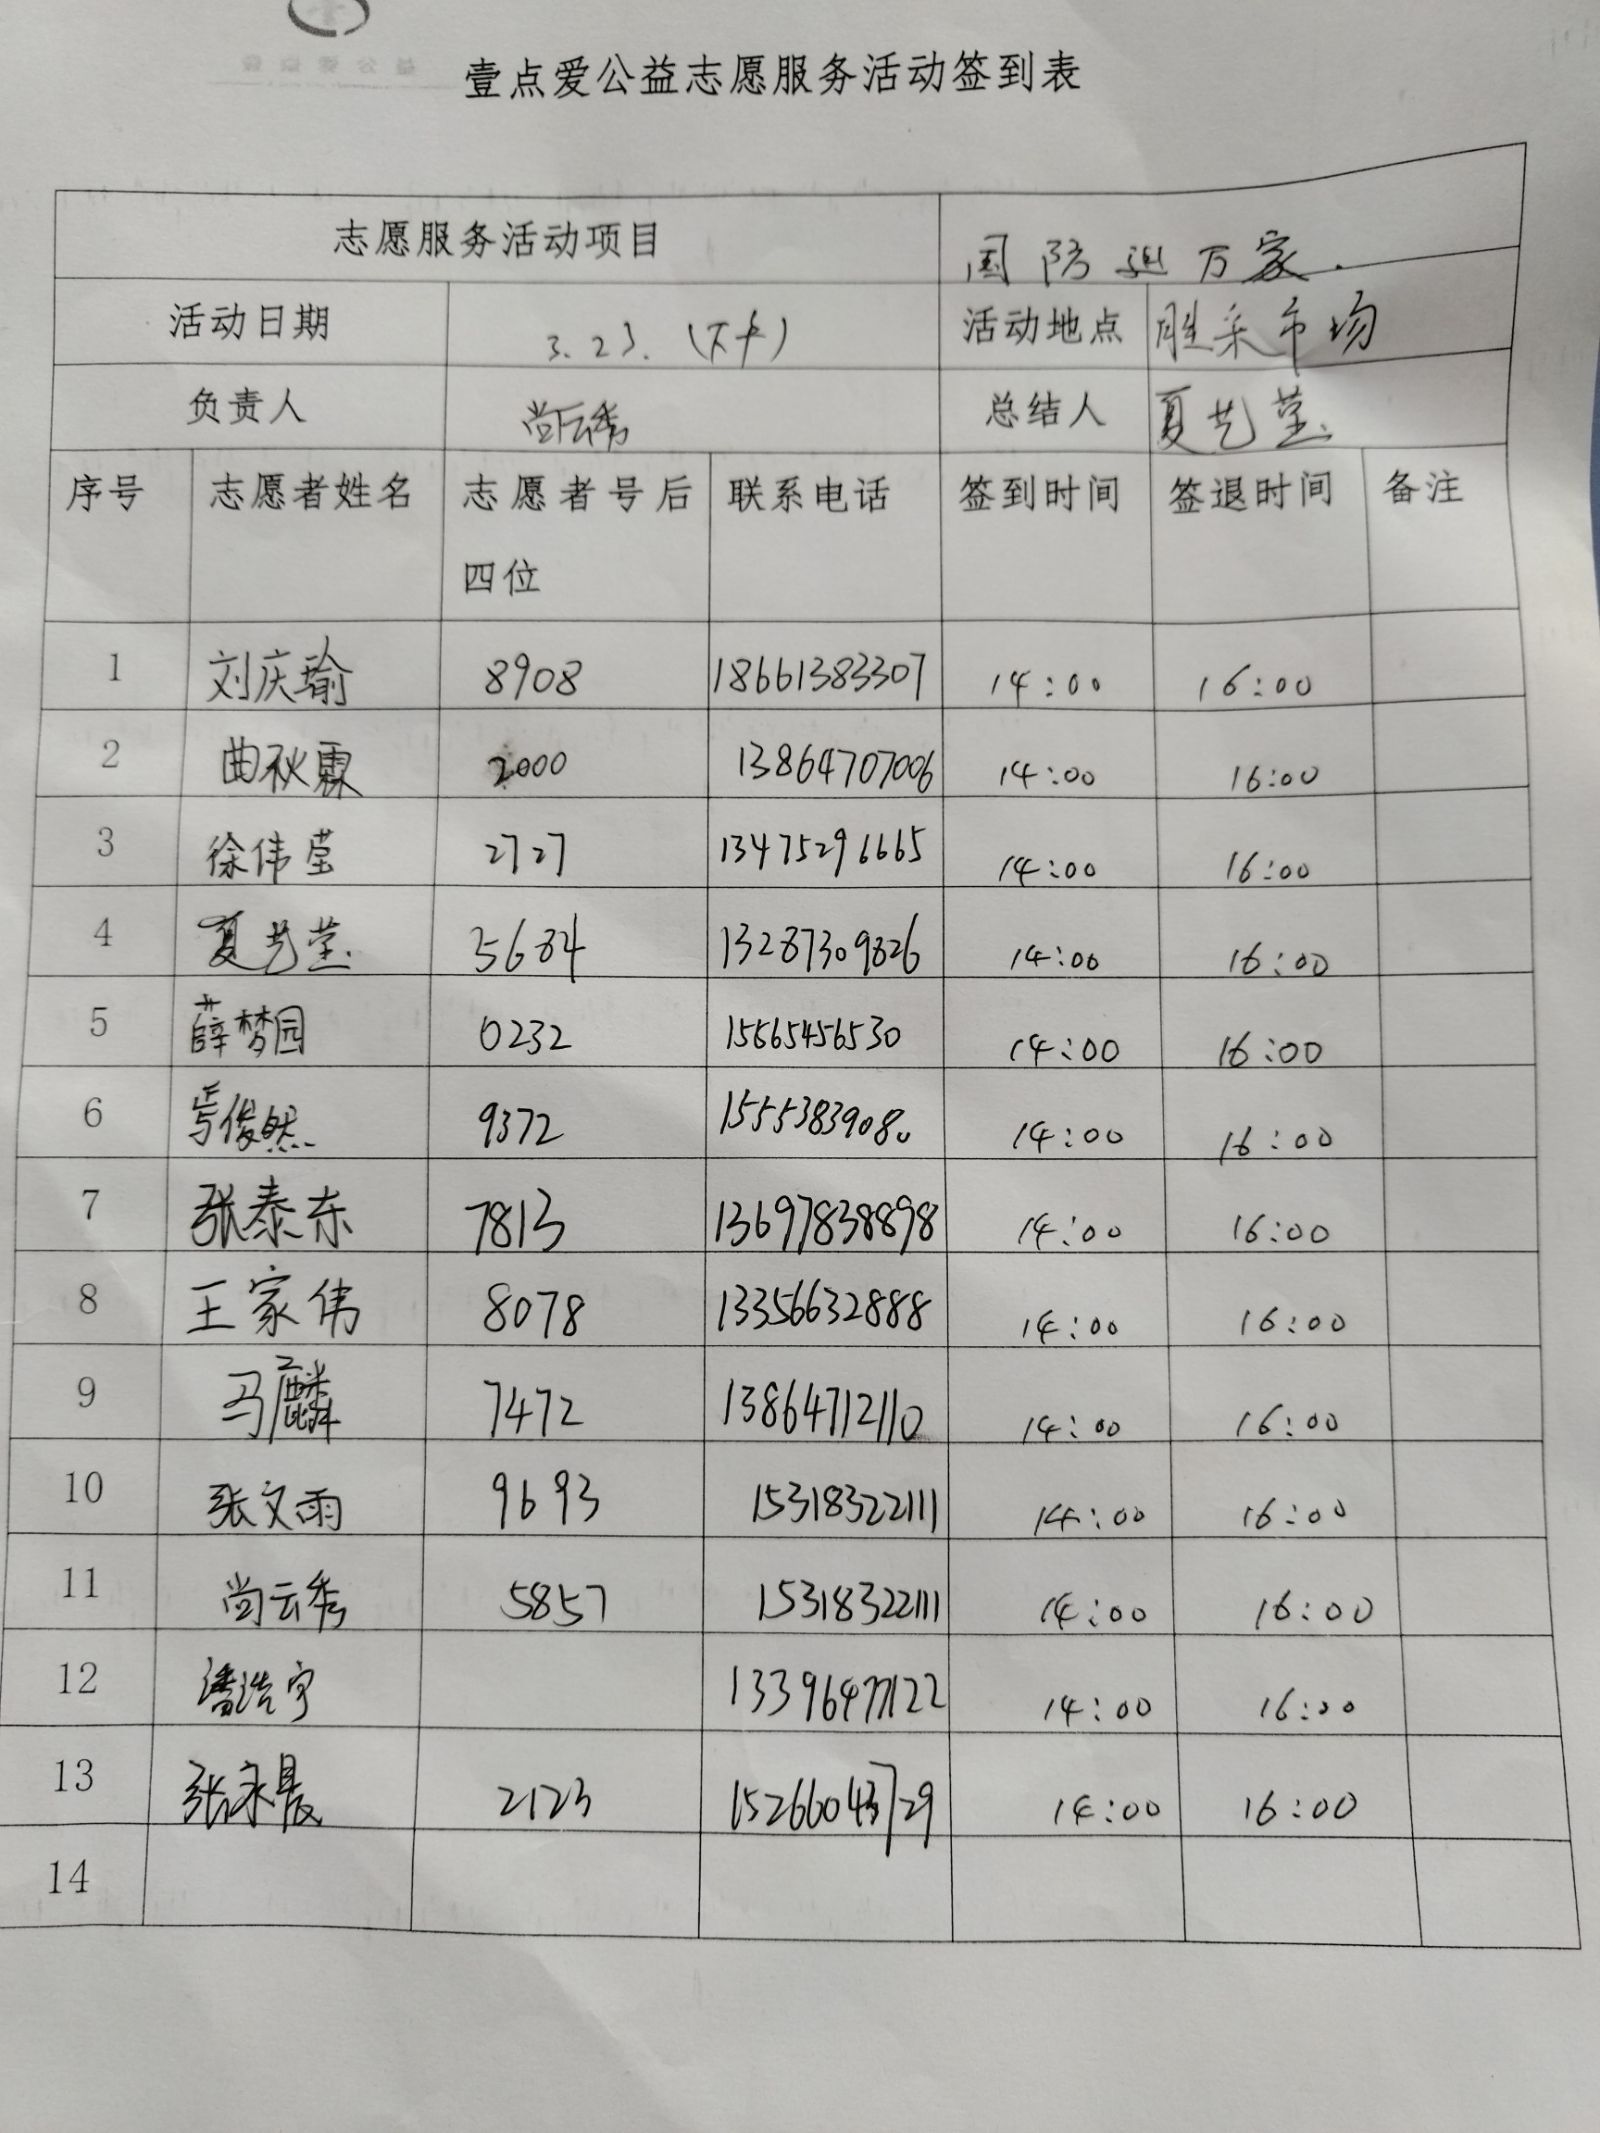 壹点爱公益志愿服务活动签到表
志愿服务活动项目 国防进万家.
活动日期 3.23.(下午) 活动地点 胜采市场
负责人 尚云秀 总结人 夏艺莹
序号 志愿者姓名 志愿者号后 联系电话 签到时间 签退时间 备注
四位
1 刘庆瑜 8908 18661383307 14:00 16:00
2 曲秋霖 2000 13864707006 14:00 16:00
3 徐伟莹 2727 13475296665 14:00 16:00
4 夏艺莹 5684 13287309826 14:00 16:00
5 薛梦园 0232 15565456530 14:00 16:00
6 俊然 9372 15553839080 14:00 16:00
7 张泰东 7813 13697838898 14:00 16:00
8 王家伟 8078 13356632888 14:00 16:00
9 马麟 7472 13864712110 14:00 16:00
10 张文雨 9693 15318322111 14:00 16:00
11 尚云秀 5857 15318322111 14:00 16:00
12 潘浩宇 13396477122 14:00 16:00
13 张永晟 2123 15266043729 14:00 16:00
14